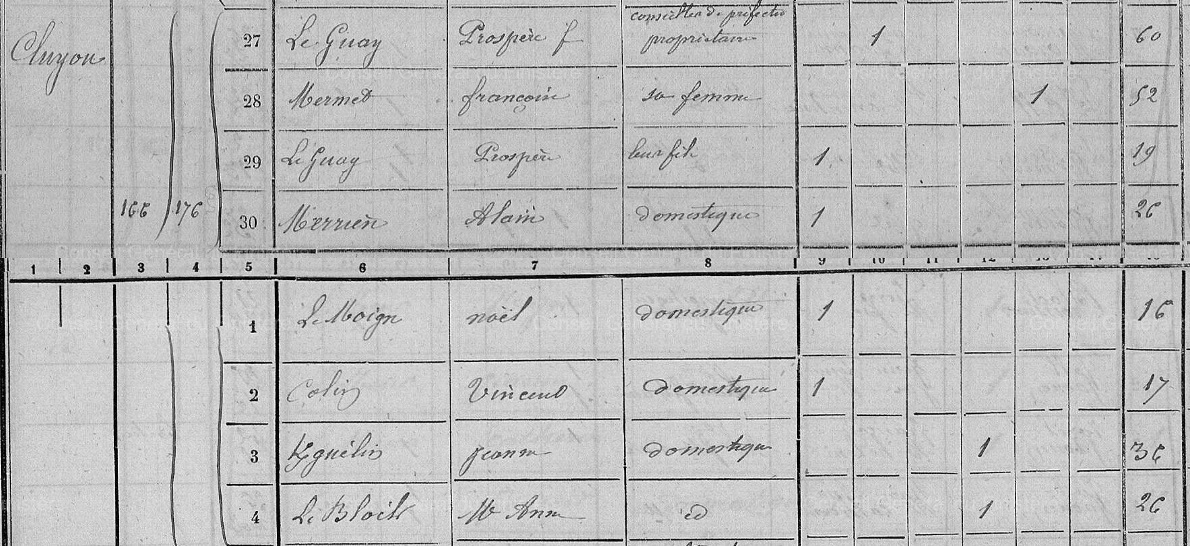 conseiller de préfecture
Cluyou 27 Le Guay Prospère f propriétaire 1 60
28 Mermet françoise sa femme 1 52
29 Le Guay Prospère leur fils 1 19
166 176 30 Merrien Alain domestique 1 26
1 2 3 4 5 6 7 8 9 10 11 12 13
1 Le Moign noël domestique 1 16
2 Colin Vincent domestique 1 17
3 Kguélin jeanne domestique 1 36
4 Le Bloch M Anne id 1 26